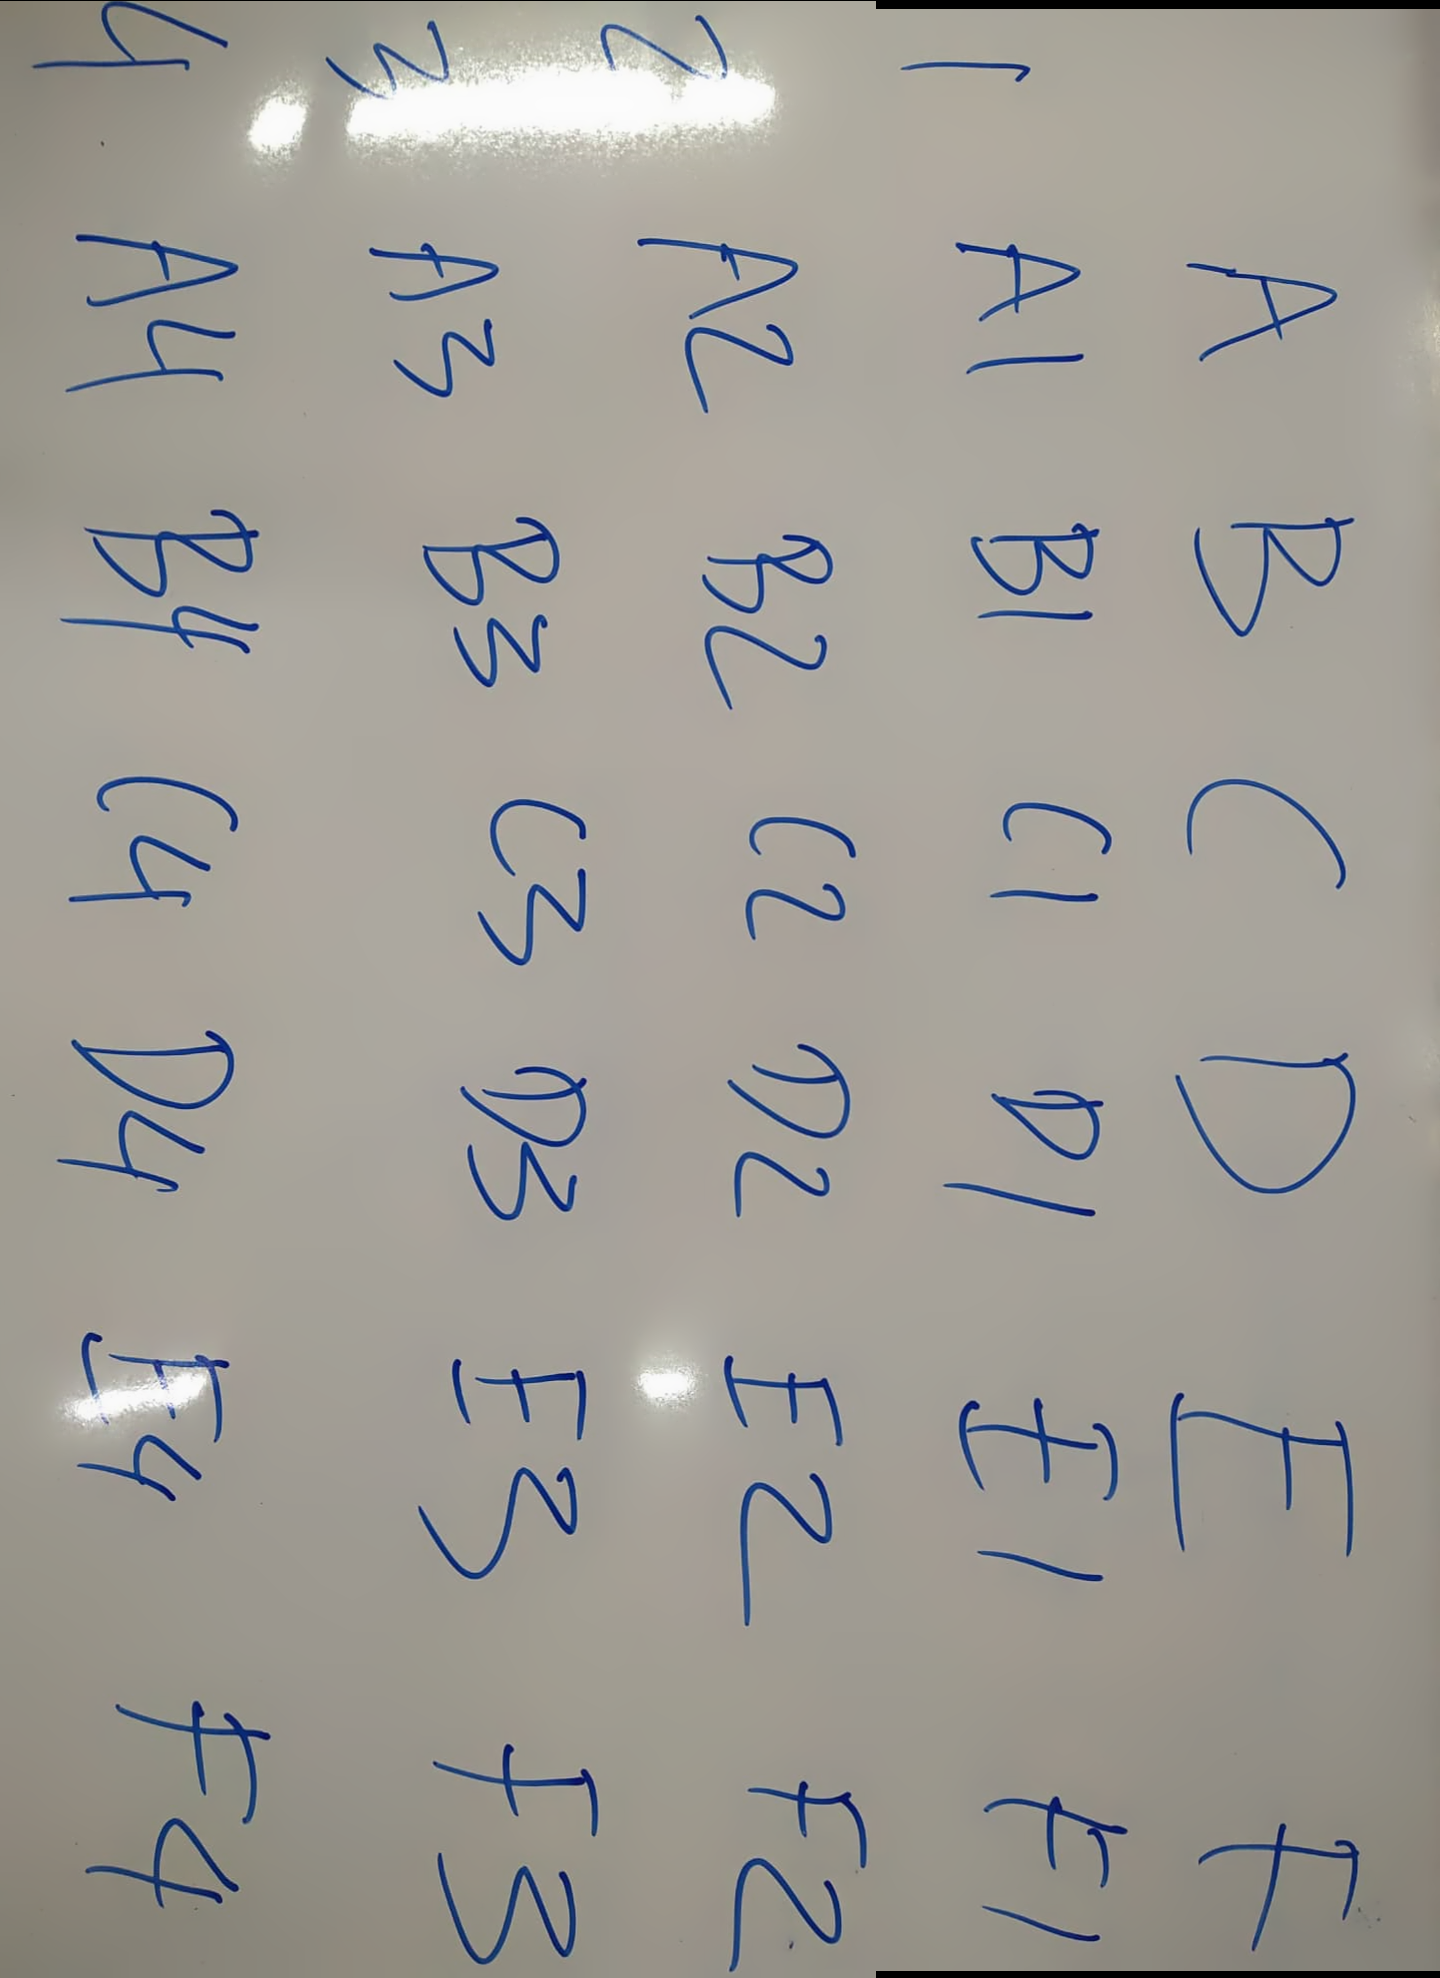 A B C D E F
1 A1 B1 C1 D1 E1 F1
2 A2 B2 C2 D2 E2 F2
3 A3 B3 C3 D3 E3 F3
4 A4 B4 C4 D4 E4 F4